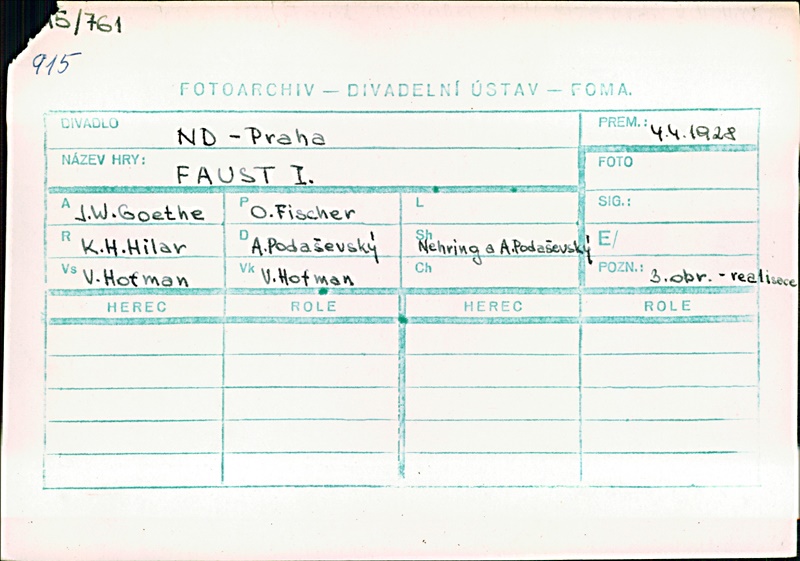 15/761
915
FOTOARCHIV — DIVADELNÍ ÚSTAV — FOMA.
DIVADLO ND - Praha PREM.: 4.4.1928
NÁZEV HRY: FAUST I. FOTO
A J.W. Goethe P O. Fischer L SIG.:
R K.H. Hilar D A. Podaševský Sh Nehring a A. Podaševský E/
Vs V. Hofman Vk V. Hofman Ch POZN.: 3. obr. - realisece
HEREC ROLE HEREC ROLE